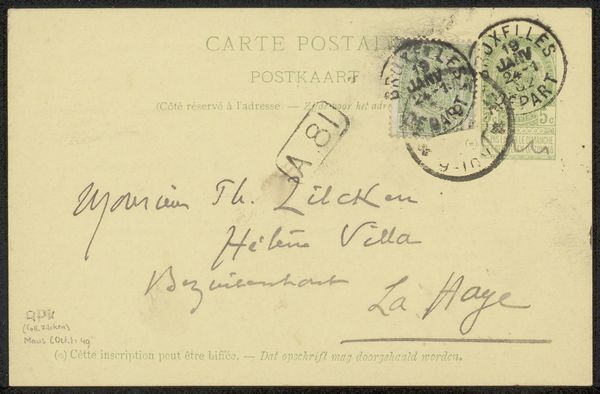 CARTE POSTALE
POSTKAART
(Côté réservé à l'adresse. — Zijde voor het adres
BRUXELLES
19
JANV
24-1
DEPART
BRUXELLES
19
JANV
24-1
DEPART
5 c
A.81
Monsieur Ph. Zilcken
Hélène Villa
Bezuidenhout
La Haye
RPK
(coll. Zilcken)
Maus (Oct.): 49
(o) Cette inscription peut être biffée. — Dat opschrift mag doorgehaald worden.